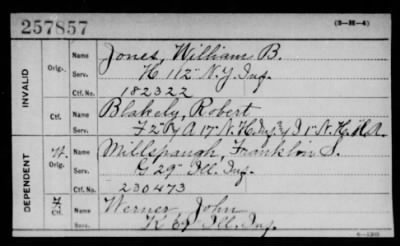 257857
(3-M-4)
INVALID
Orig. Name Jones, William B.
Serv. K 112" N.Y. Inf.
Ctf. No. 182322
Ctf. Name Blakely, Robert
Serv. F 2" & A 17" N.H. Inf. & I 1" N.H. H.A.
DEPENDENT
W. Orig. Name Millspaugh, Franklin S.
Serv. G 29" Ill. Inf.
Ctf. No. 230473
Ctf. Name Werner, John
Serv. K Ill. Inf.